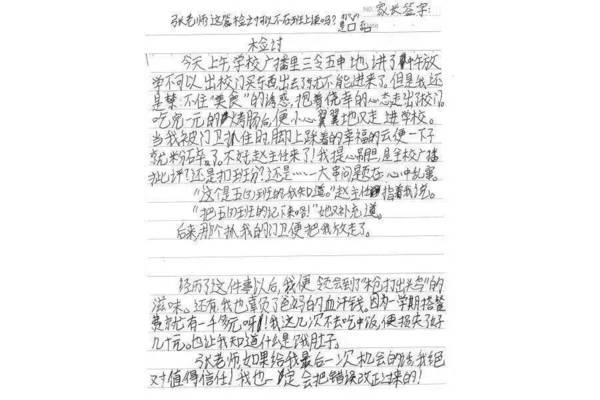 家长签字:
张老师这篇检讨可以不在班上读吗?
检讨
今天上午学校广播里三令五申地讲了中午放
学不可以出校门买东西出去了就不能进来了。但是我还
是禁不住“美食”的诱惑,抱着侥幸的心态走出了校门。
吃完一元的烤肠后,便小心翼翼地又走进学校。
当我被门卫抓住时,脚上踩着的幸福的云便一下子
就粉碎了。不好,赵主任来了!我提心吊胆 是全校广播
批评?还是扣班分?还是……一大串问题在心中乱窜。
“这个是五四班的我知道。”赵主任指着我说。
“把五四班的记下来哈!”她又补充道。
后来,那个抓我的门卫便把我放走了。
经历了这件事以后,我便领会到了“枪打出头鸟”的
滋味。还有,我也辜负了爸妈的血汗钱。因为一学期搭餐
费就有一千多元呀!我这几次不去吃中饭,便损失了
几十元。也让我知道什么是饿肚子。
张老师如果给我最后一次机会的话,我绝
对值得信任!我也一定会把错误改正过来的!